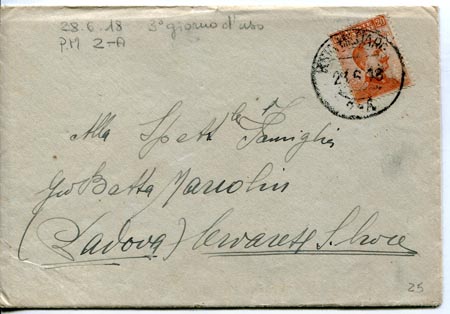 28.6.18 3° giorno d'uso
P.M 2-A
POSTA MILITARE
6 18
2-A
Alla Spett.le Famiglia
Gio Batta
(Padova) Cervarese S. Croce
25